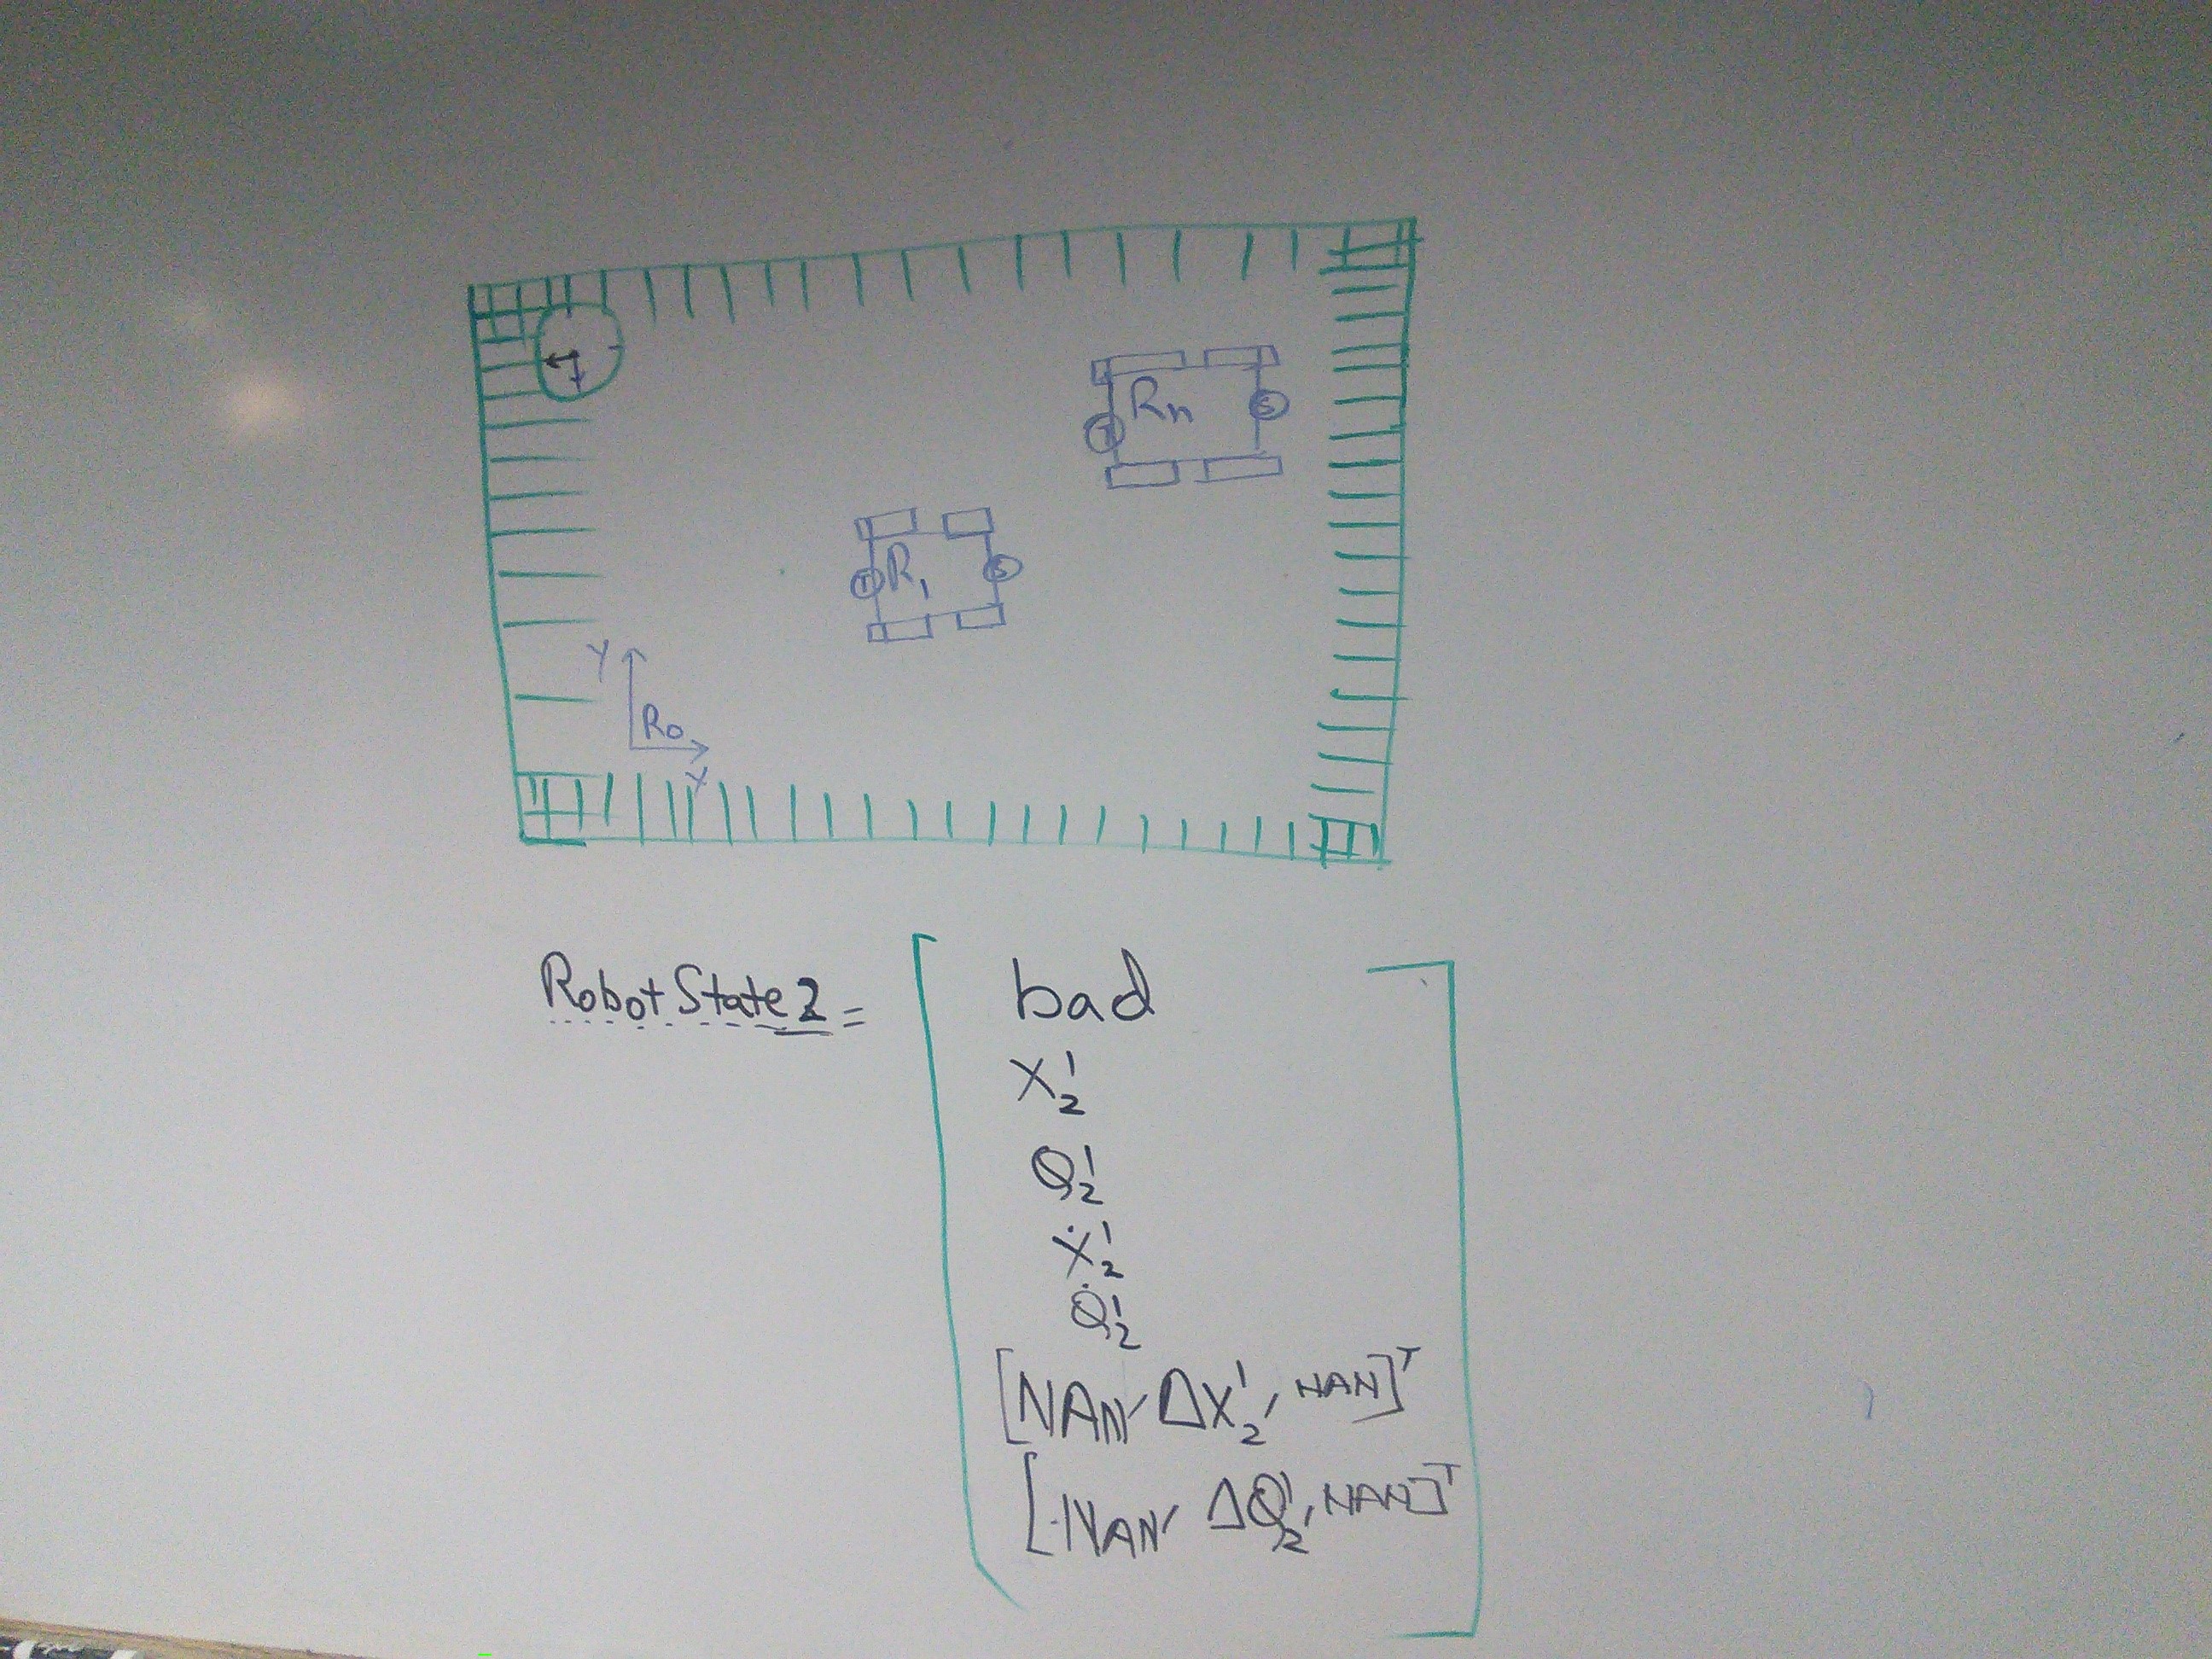 Rn
R₁
Y
R₀
X
Robot State 2 =
bad
X₂¹
Q₂¹
Ẋ₂¹
Q̇₂¹
[NAN, ΔX₂¹, NAN]ᵀ
[NAN, ΔQ₂¹, NAN]ᵀ